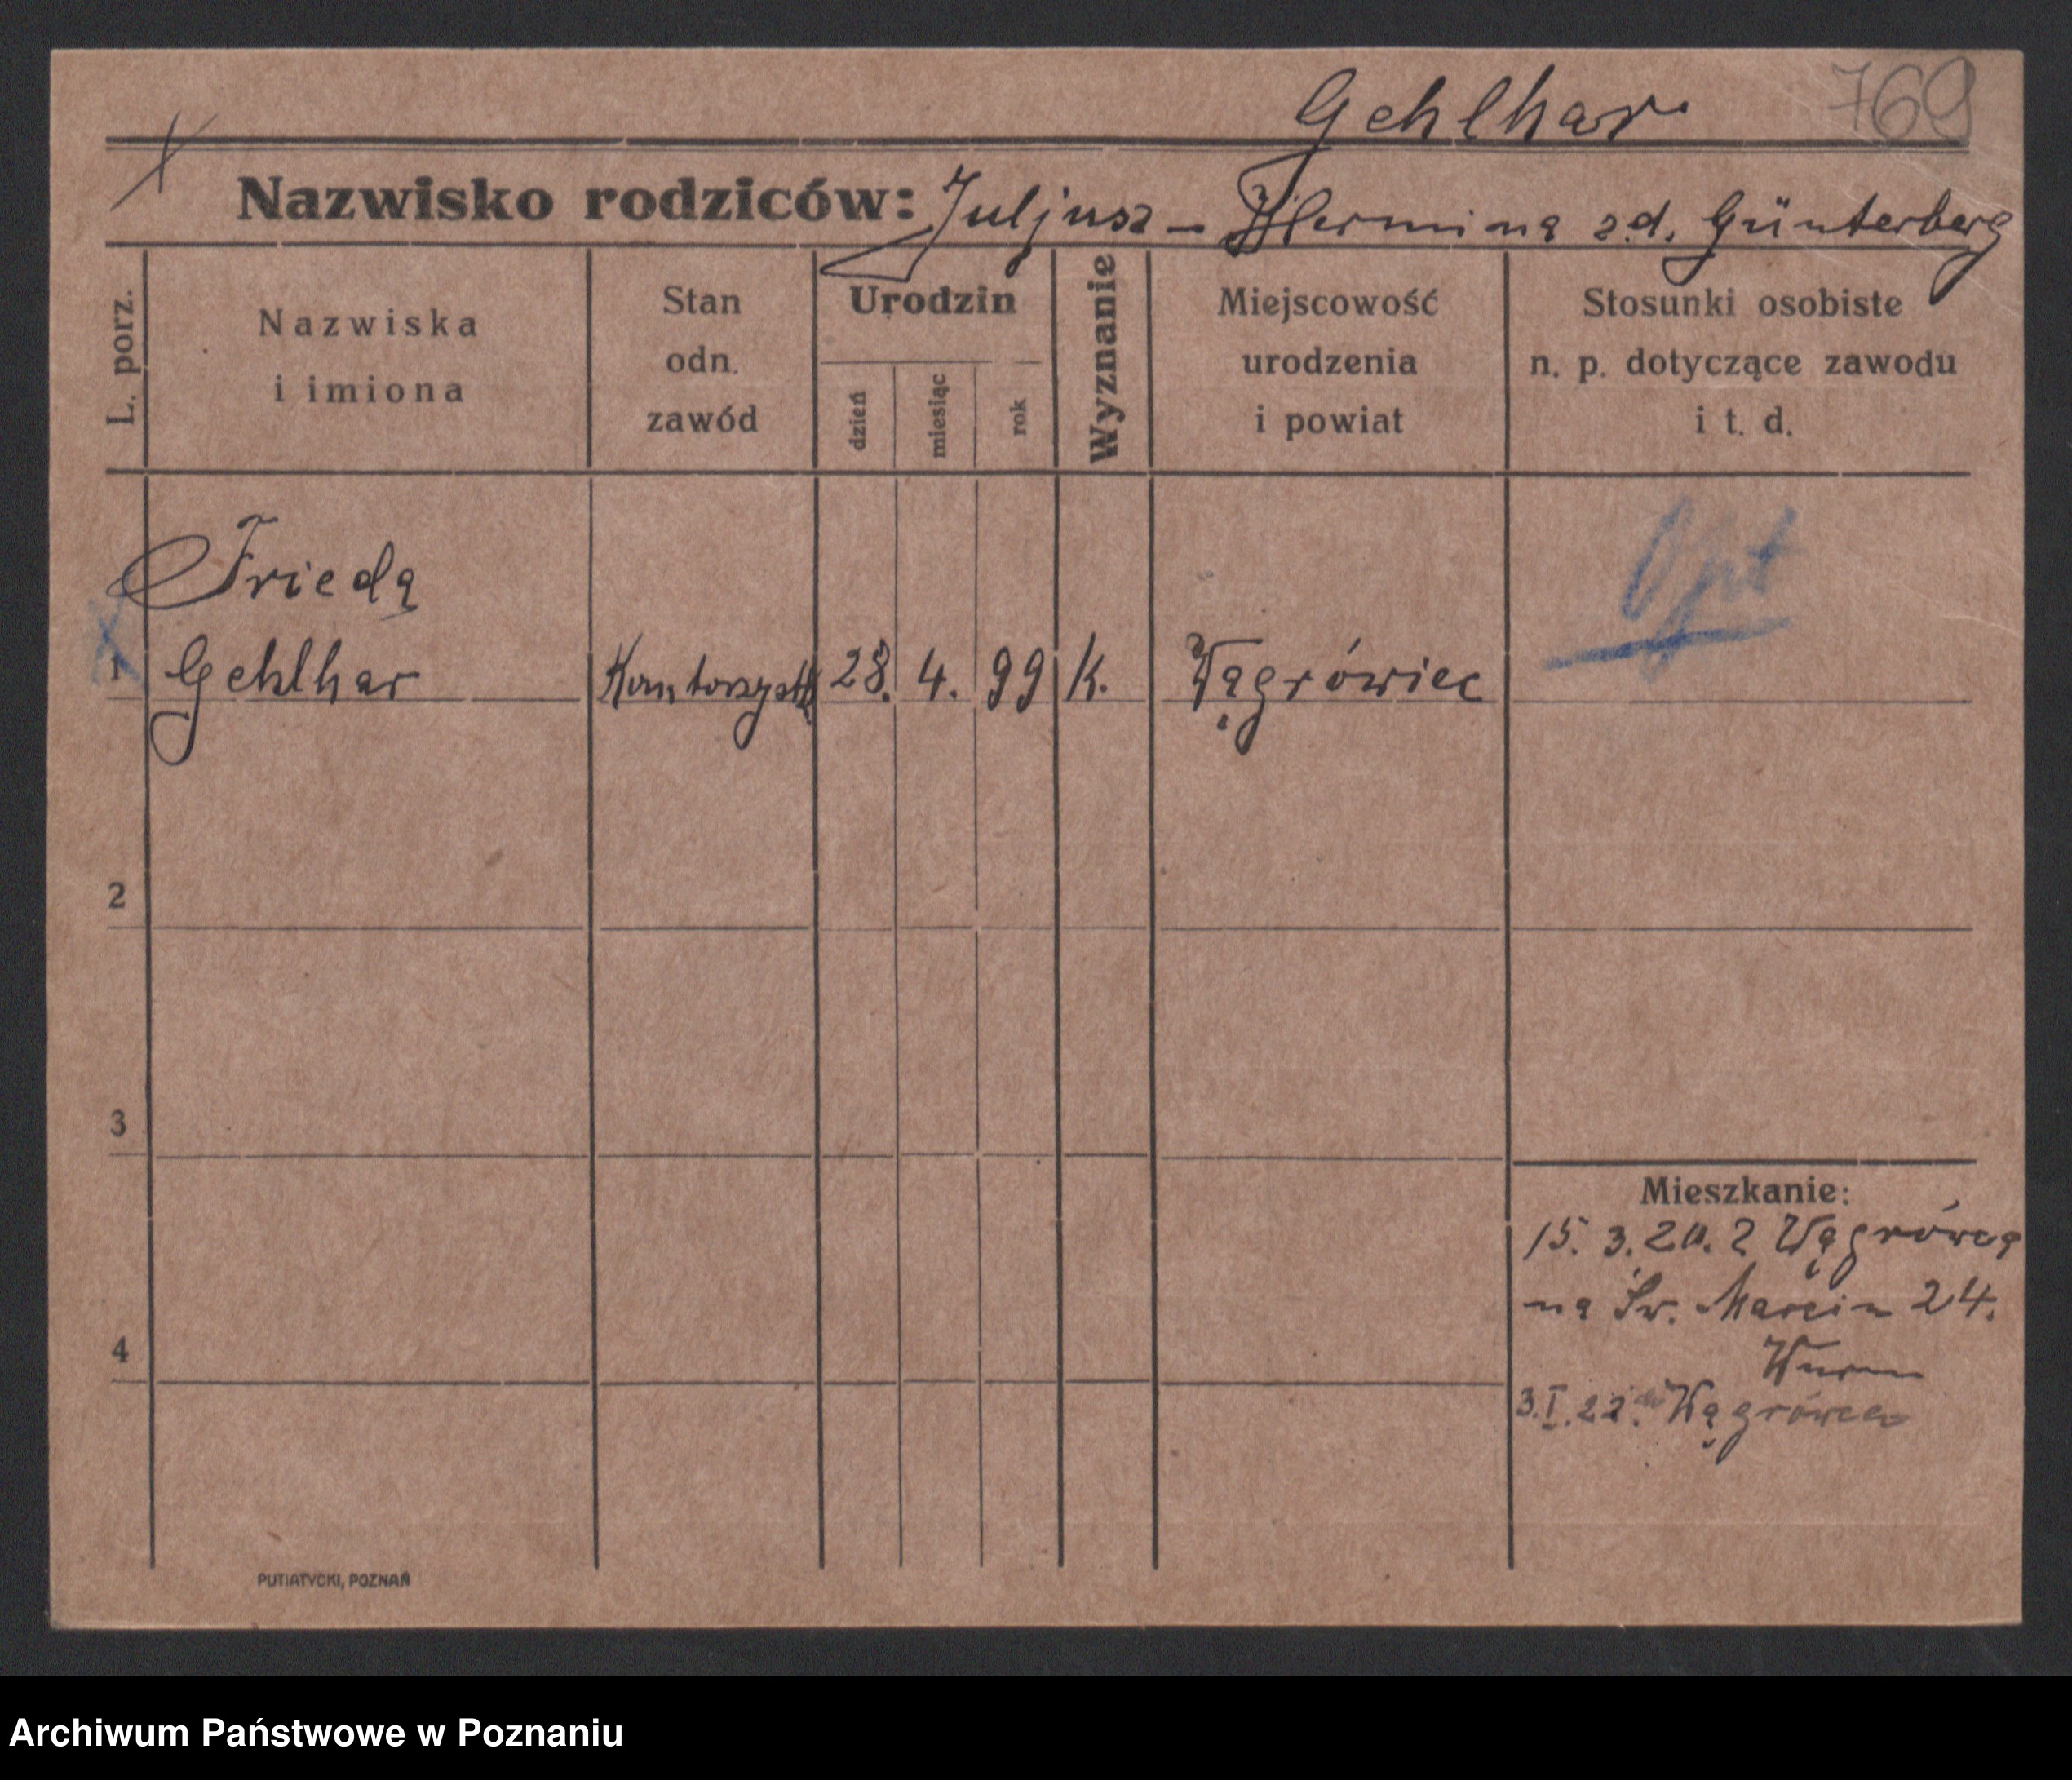 Gehlhar 769
Nazwisko rodziców: Juljusz – Hermina z d. Günterberg
L. porz.
Nazwiska
i imiona
Stan
odn.
zawód
Urodzin
dzień
miesiąc
rok
Wyznanie
Miejscowość
urodzenia
i powiat
Stosunki osobiste
n. p. dotyczące zawodu
i t. d.
Frieda
Opt
1 Gehlhar Kontorzystka 28. 4. 99 K. Wągrówiec
2
3
4
Mieszkanie:
15. 3. 20. z Wągrówca
na Św. Marcin 24.
Wurm
3. I. 22. do Wągrówca
PUTIATYCKI, POZNAŃ
Archiwum Państwowe w Poznaniu